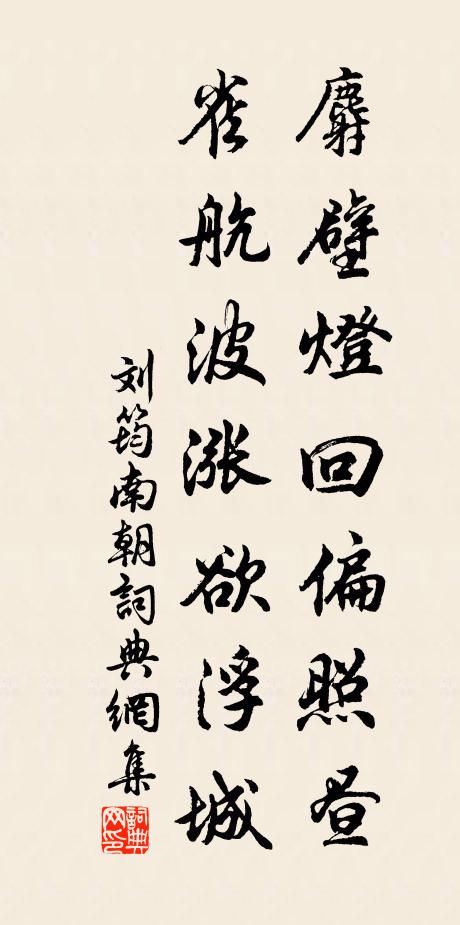 麝壁燈回偏照昼
雀航波漲欲浮城
刘筠南朝詞典網集
詞典网印